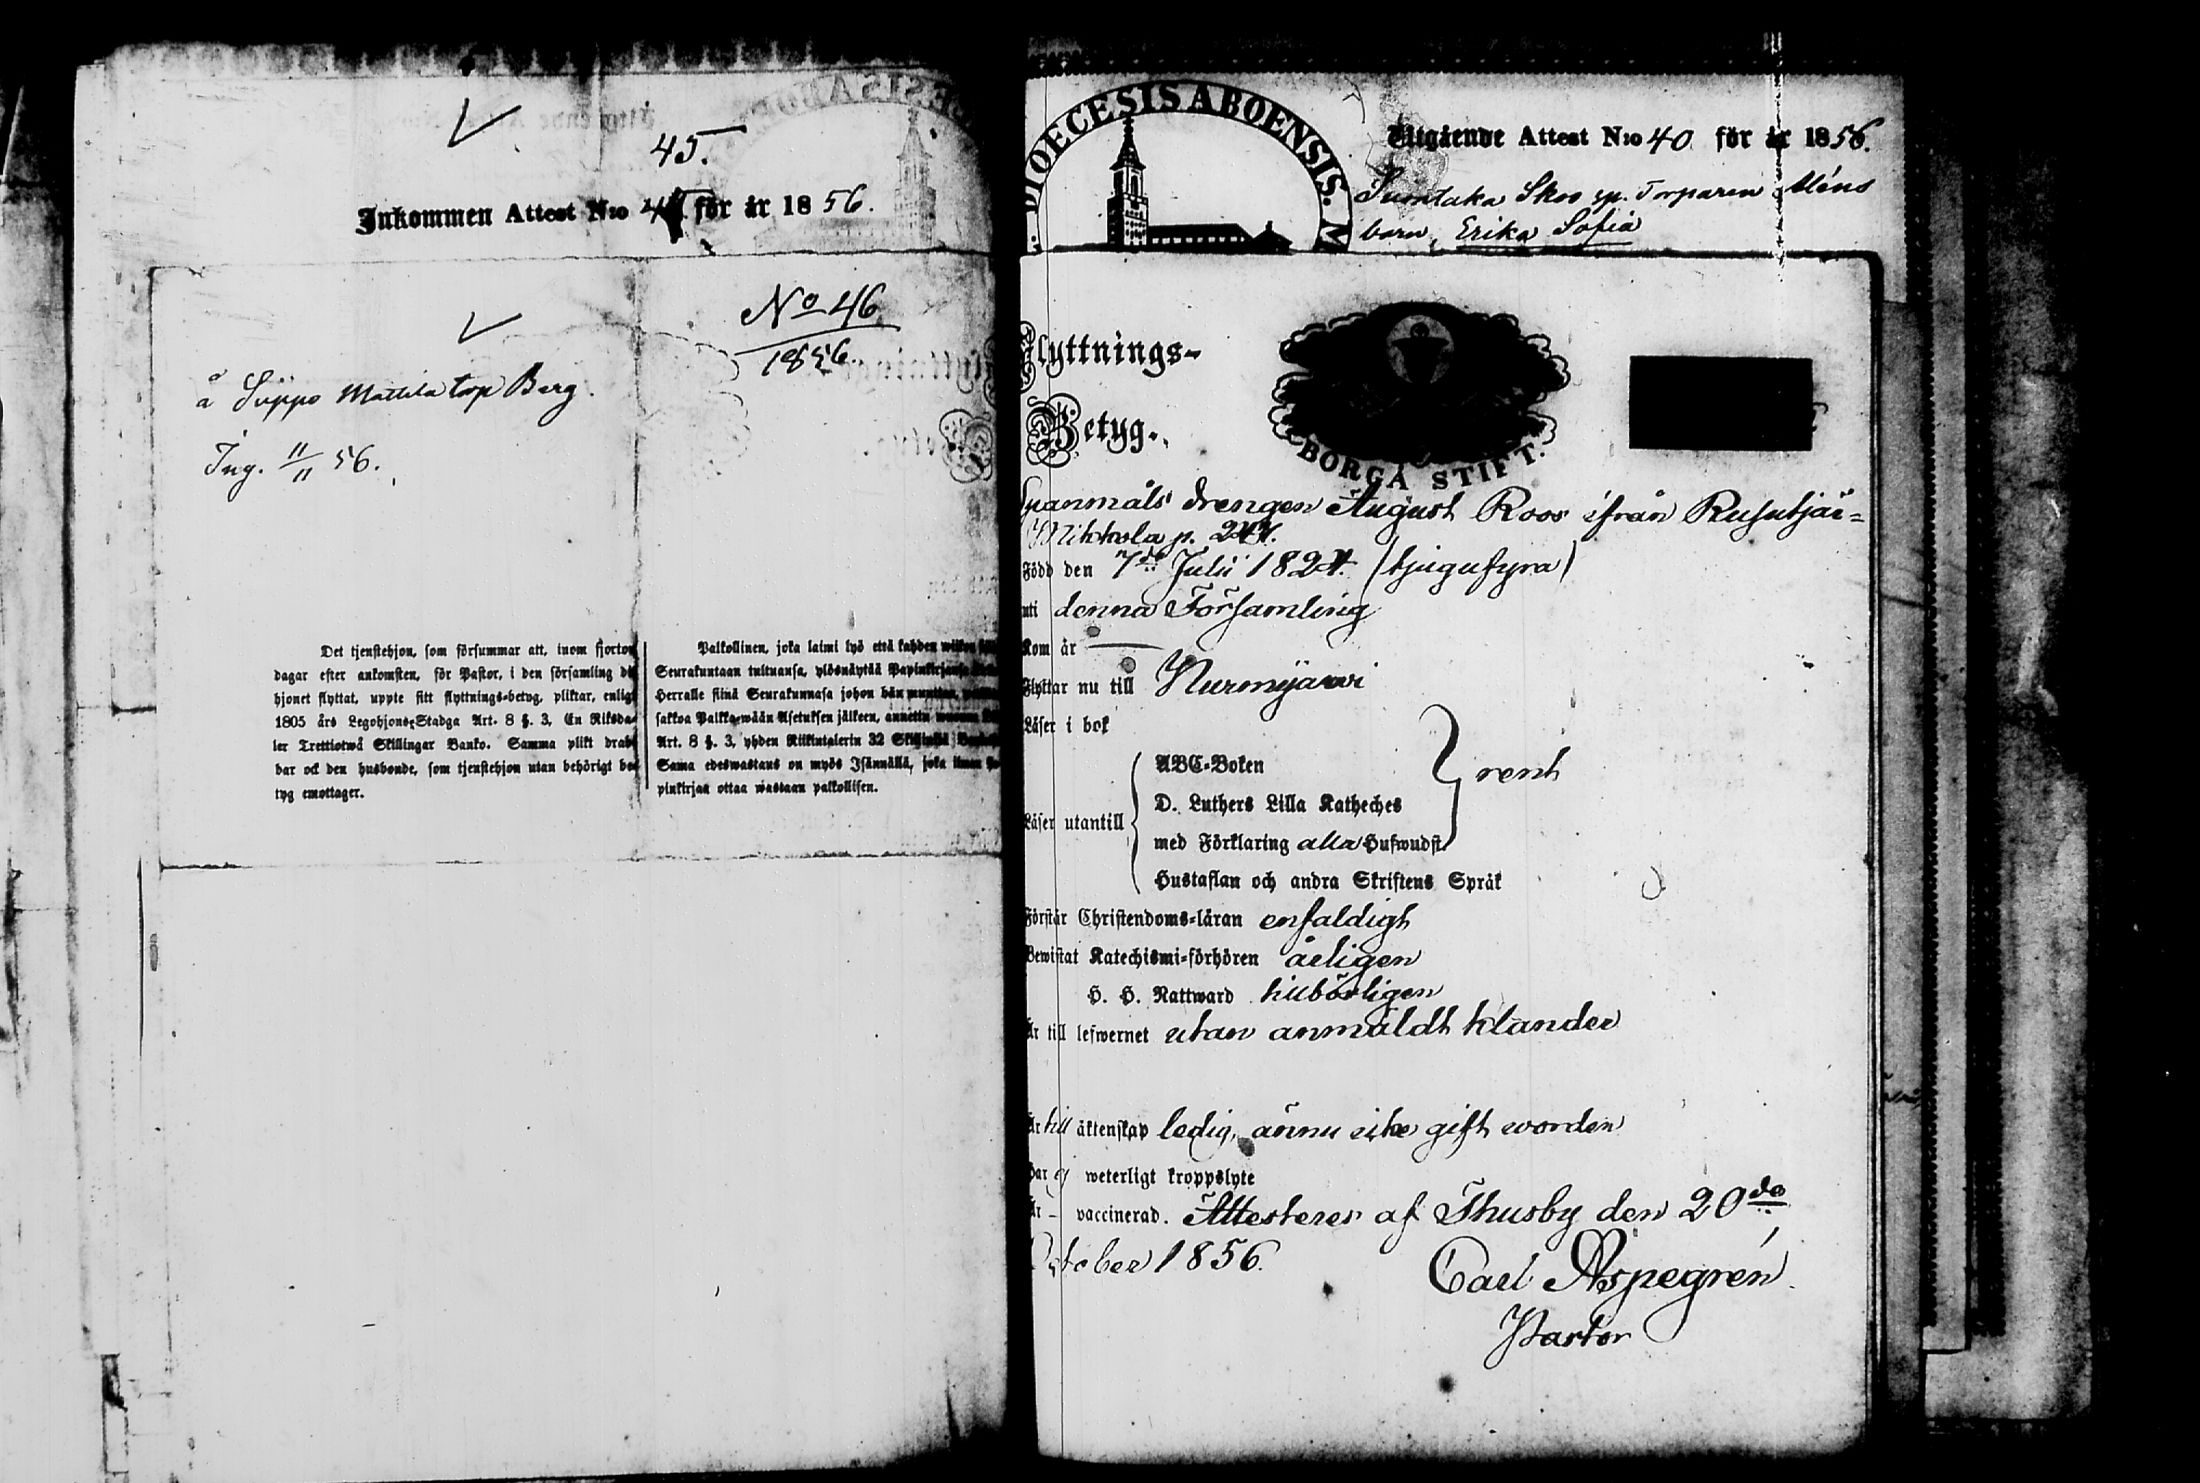 45.
Inkommen Attest N:o för år 1856.
No 46
1856.
å Siippo Mattila torp Berg.
Ing. 11/11 56.
Det tjenstehjon, som försummar att, inom fjorton
dagar efter ankomsten, för Pastor, i den församling
hjonet flyttat, uppte sitt flyttnings-betyg, pliktar, enligt
1805 års Legohjons-Stadga Art. 8 §. 3, En Riksda-
ler Trettiotwå Skillingar Banko. Samma plikt drab-
bar ock den husbonde, som tjenstehjon utan behörigt be-
tyg emottager.
Palkollinen, joka laimi lyö että kahden wiikon
Seurakuntaan tultuansa, ylösnäyttää Papinkirjansa
Herralle siinä Seurakunnasa johon hän muuttaa,
sakkoa Palkka-wään Asetuksen jälkeen, annettu wuonna
Art. 8 §. 3, yhden Riikintalerin 32 Skillinkiä
Sama edeswastaus on myös Isännällä, joka ilman Pa-
pinkirjaa ottaa wastaan palkollisen.
DIOECESIS ABOENSIS. M
Utgående Attest N:o 40 för år 1856.
Skoo sp. Torparen
barn, Erika Sofia
Flyttnings-
Betyg.
BORGÅ STIFT.
Spanmåls drengen August Roos ifrån Rusutjär-
Mikkola p. 247.
Född den 7de Julii 1824. (tjugufyra)
uti denna Församling
Kom år —
Flyttar nu till Nurmijärwi
Läser i bok
ABC-Boken
D. Luthers Lilla Katheches
med Förklaring alla Hufwudst.
} rent
Läser utantill
Hustaflan och andra Skriftens Språk
Förstår Christendoms-läran enfaldigt
Bewistat Katechismi-förhören årligen
H. H. Nattward tillbörligen
Är till lefwernet utan anmäldt klander
Är till äktenskap ledig, ännu icke gift worden
Har ej weterligt kroppslyte
Är – vaccinerad. Attesterar af Thusby den 20de
October 1856.
Carl Aspegrén
Pastor